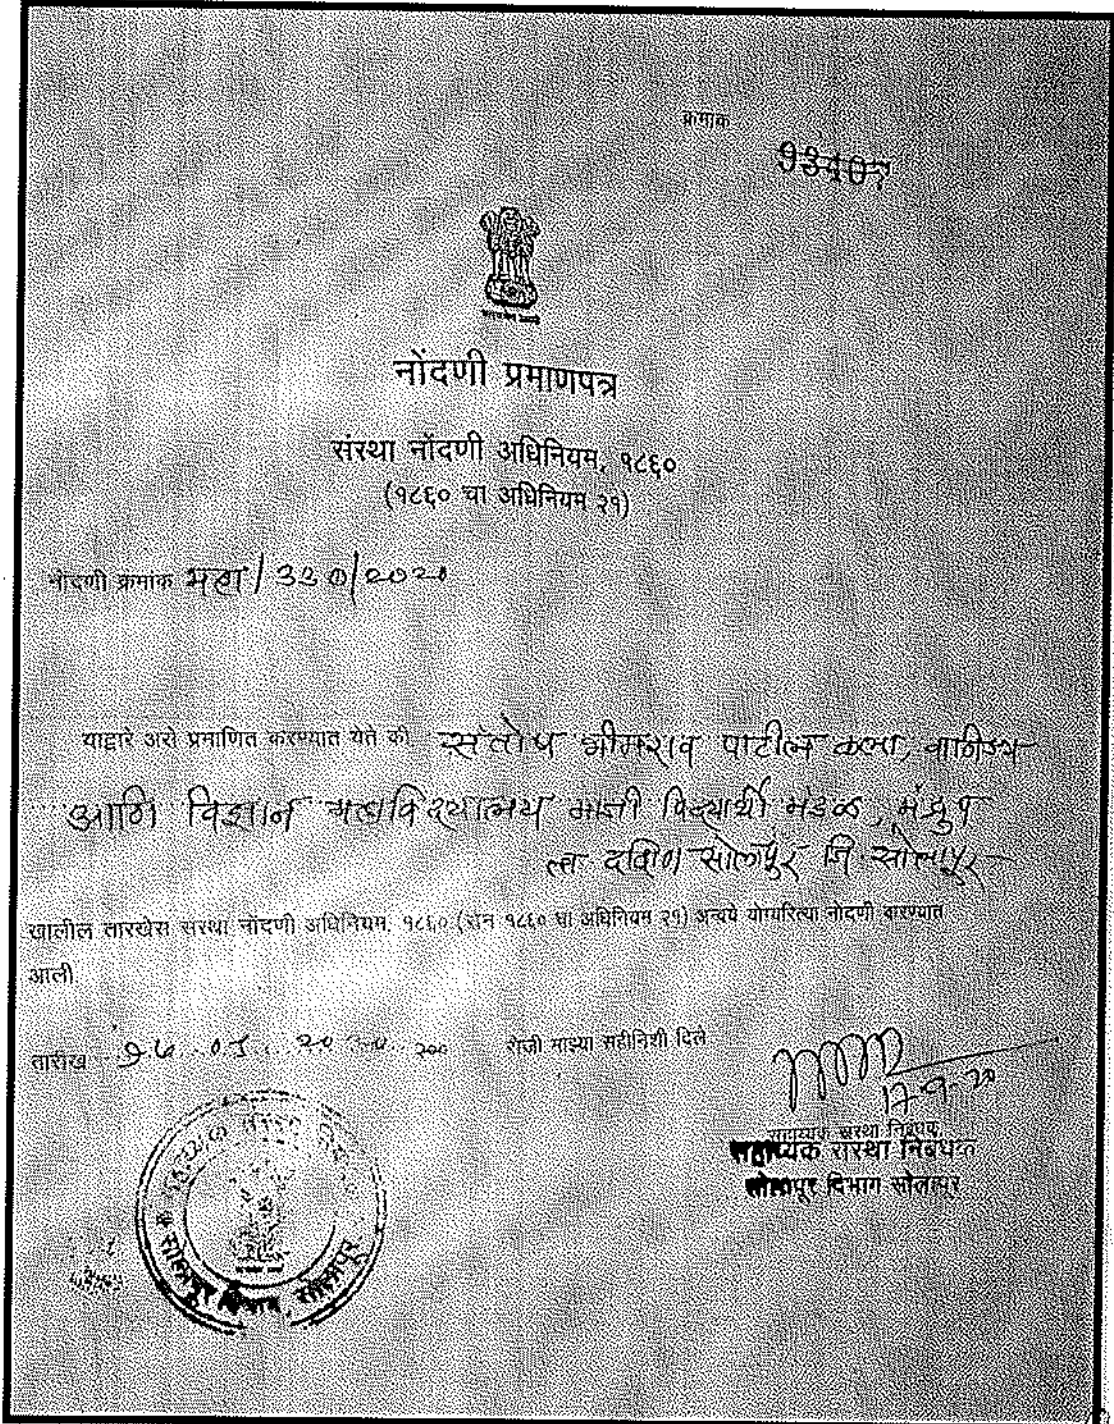 क्रमांक
नोंदणी प्रमाणपत्र
संस्था नोंदणी अधिनियम, १८६०
(१८६० चा अधिनियम २१)
नोंदणी क्रमांक महा/३३०/२०२०
याद्वारे असे प्रमाणित करण्यात येते की, संतोष भीमराव पाटील कला, वाणिज्य
आणि विज्ञान महाविद्यालय माजी विद्यार्थी मंडळ, मंद्रुप
ता दक्षिण सोलापूर जि. सोलापूर
खालील तारखेस संस्था नोंदणी अधिनियम, १८६० (सन १८६० चा अधिनियम २१) अन्वये योग्यरित्या नोंदणी करण्यात
आली.
तारीख २०० रोजी माझ्या सहीनिशी दिले
17-9-20
सहाय्यक संस्था निबंधक
सहाय्यक संस्था निबंधक
सोलापूर विभाग सोलापूर
सोलापूर विभाग, सोलापूर